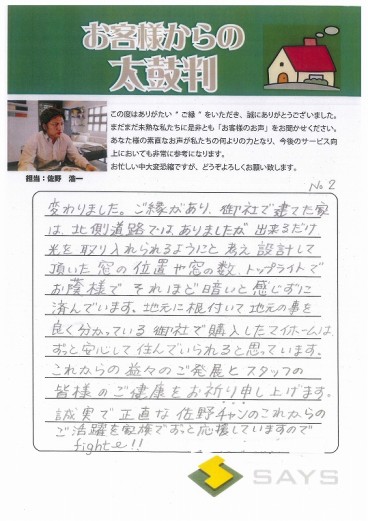 お客様からの
太鼓判
この度はありがたい“ご縁”をいただき、誠にありがとうございました。
まだまだ未熟な私たちに是非とも「お客様のお声」をお聞かせください。
あなた様の素直なお声が私たちの何よりの力となり、今後のサービス向
上においても非常に参考になります。
お忙しい中大変恐縮ですが、どうぞよろしくお願い致します。
担当：佐野 浩一
No2
変わりました。ご縁があり、御社で建てた家
は、北側道路では、ありましたが出来るだけ
光を取り入れられるようにと考え設計して
頂いた窓の位置や窓の数、トップライトで
お蔭様で それほど暗いと感じずに
済んでいます、地元に根付いて地元の事を
良く分かっている御社で購入したマイホームは、
ずっと安心して住んでいられると思っています、
これからの益々のご発展とスタッフの
皆様のご健康をお祈り申し上げます。
誠実で正直な佐野チャンのこれからの
ご活躍を家族でずっと応援していますので
fighte!!
SAYS